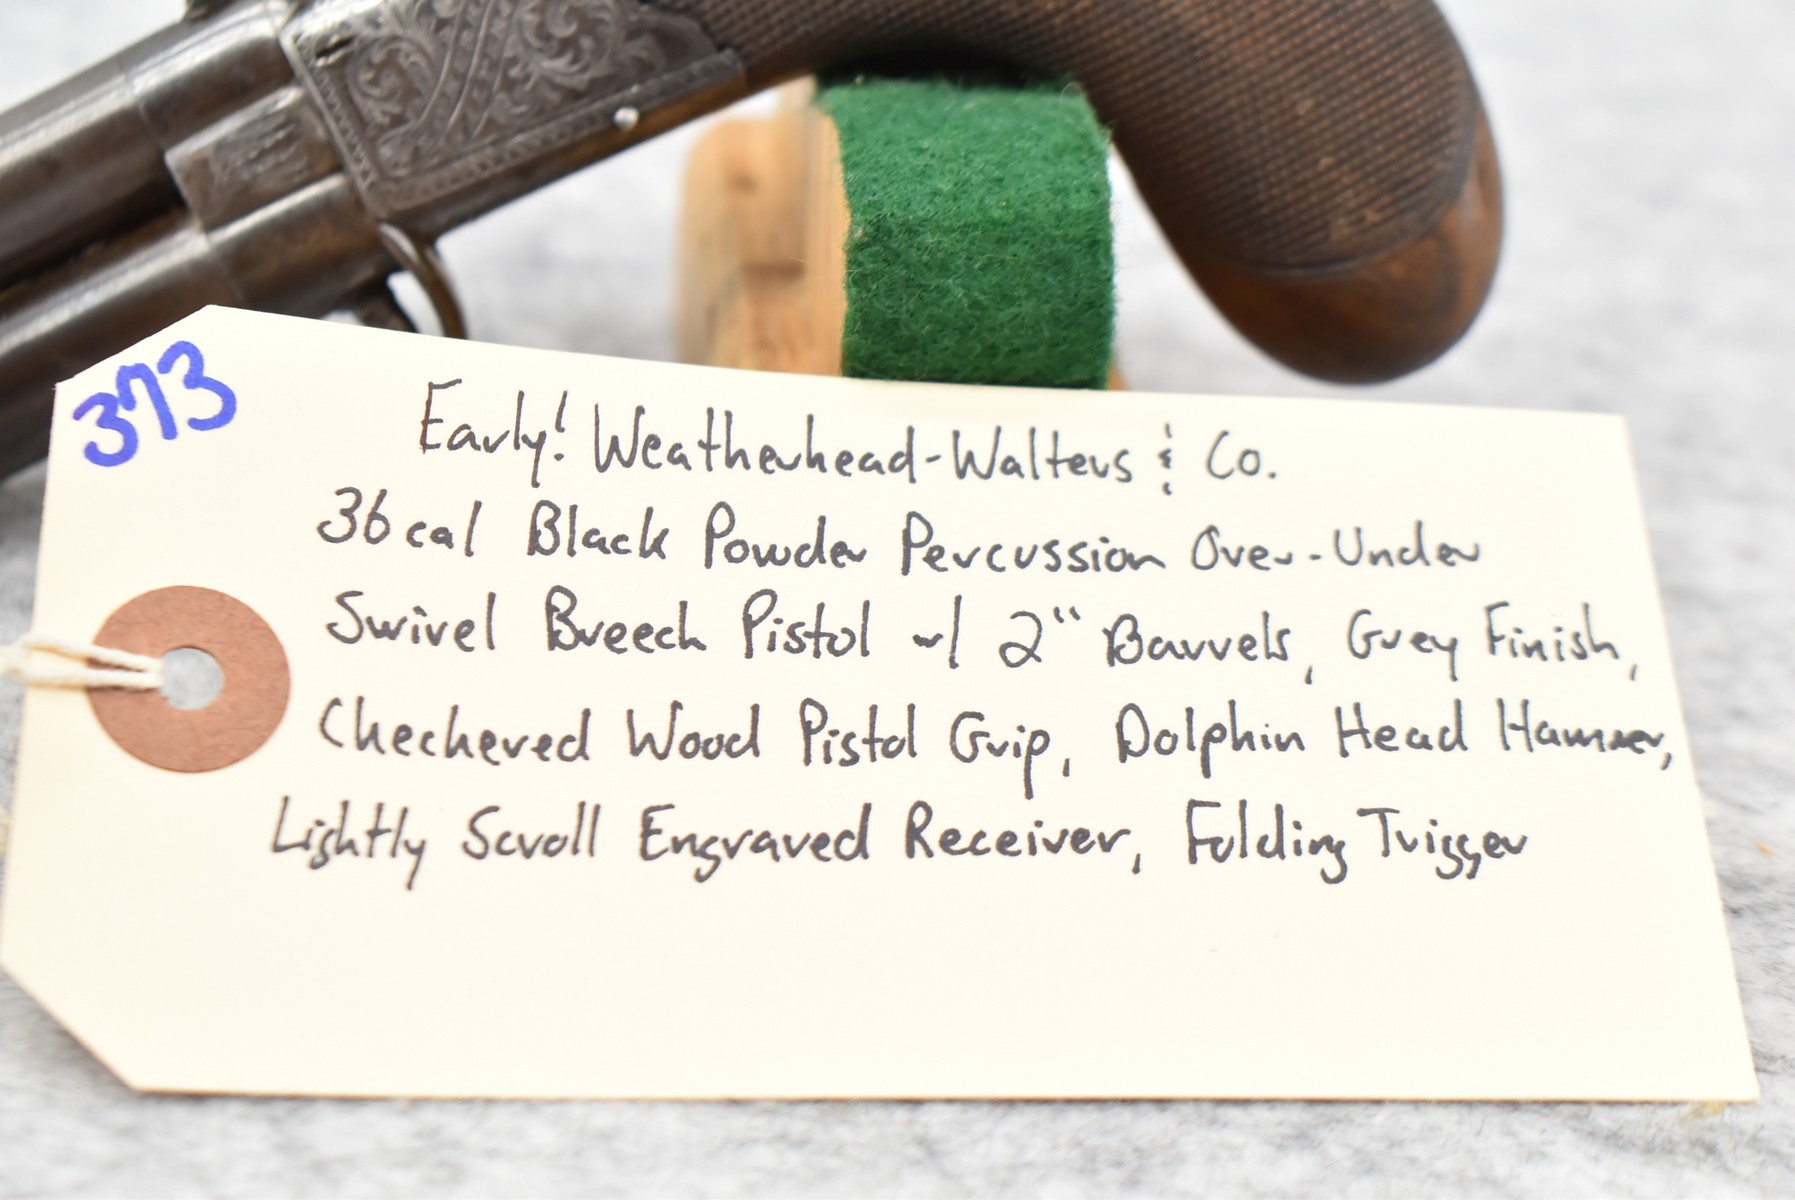 373
Early! Weatherhead-Walters & Co.
36 cal Black Powder Percussion Over-Under
Swivel Breech Pistol w/ 2" Barrels, Grey Finish,
Checkered Wood Pistol Grip, Dolphin Head Hammer,
Lightly Scroll Engraved Receiver, Folding Trigger